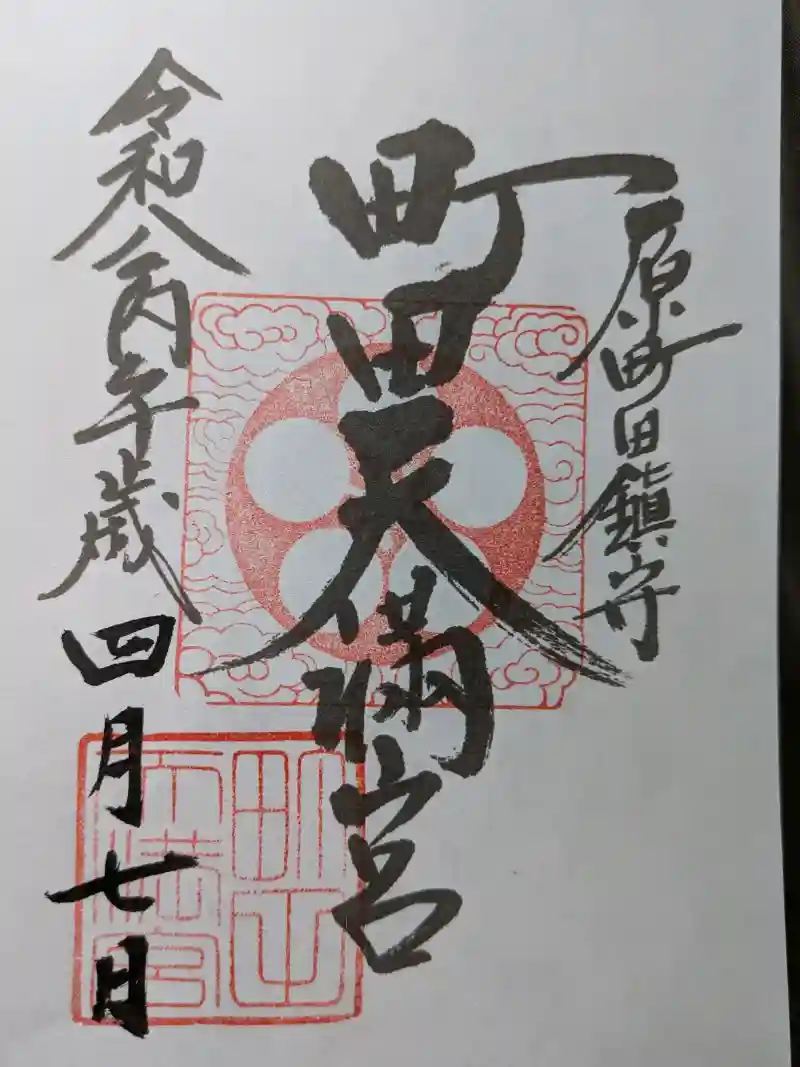 原町田鎮守
町田天満宮
令和八丙午歳四月七日
町田天満宮